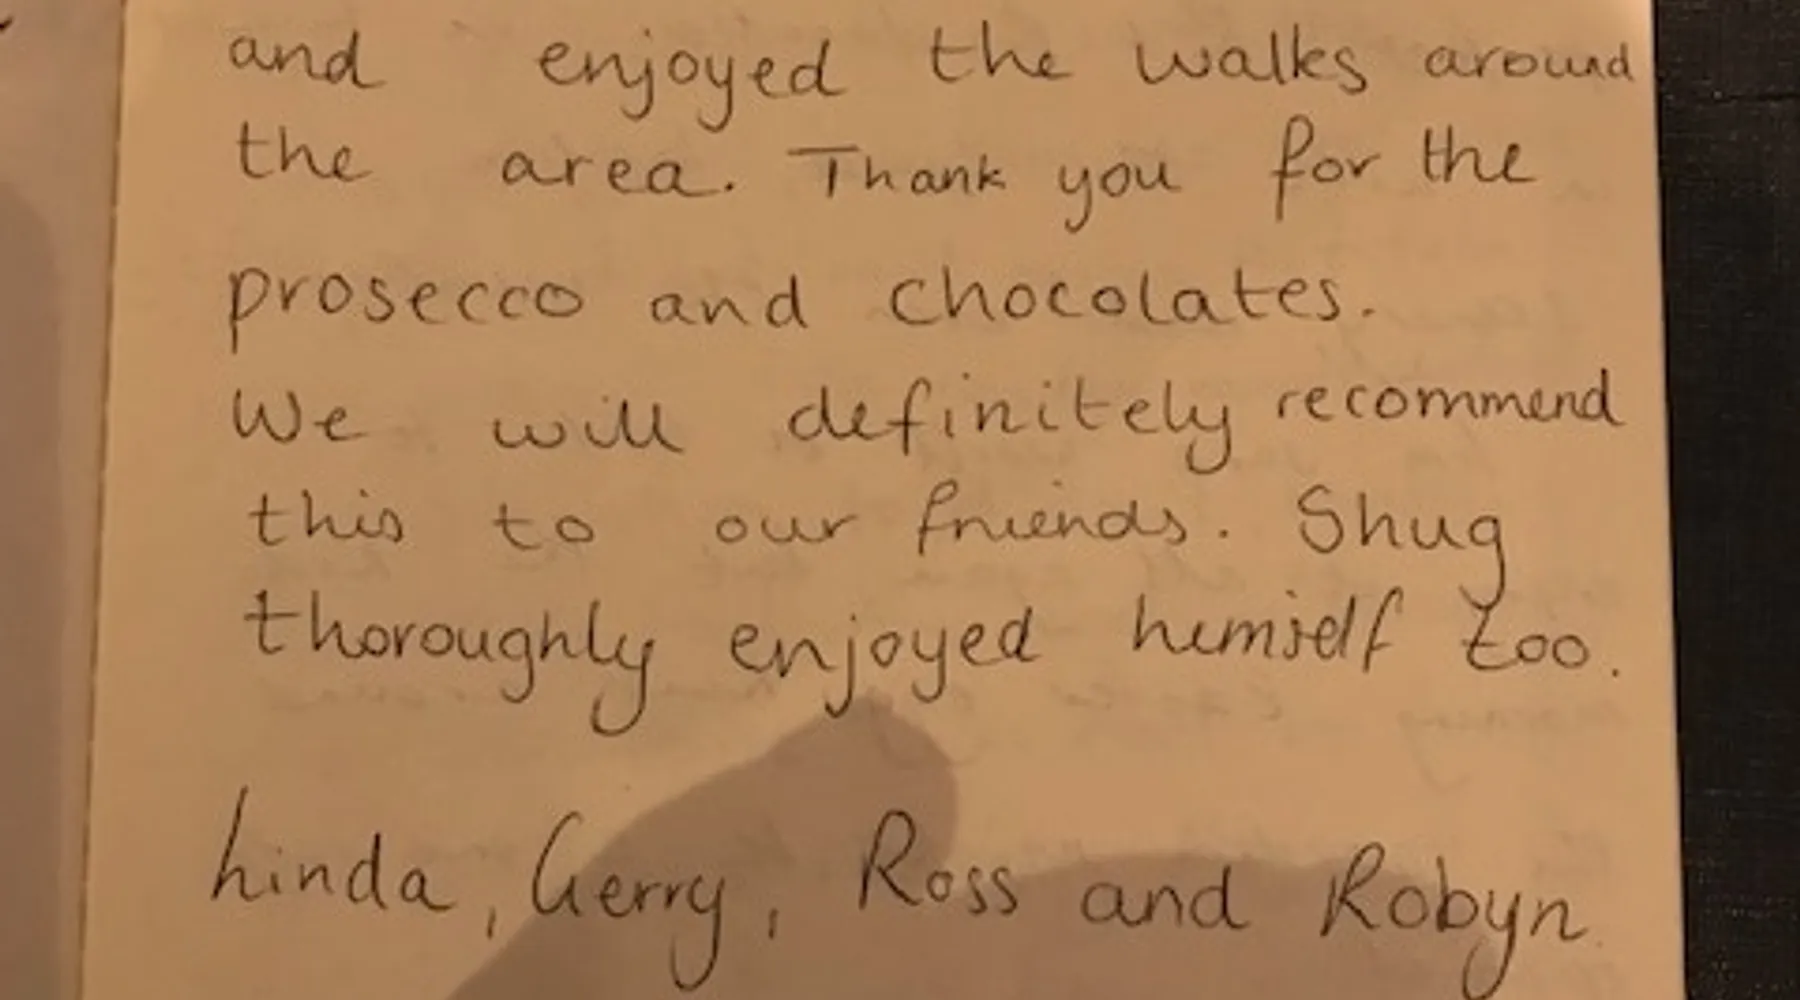 and enjoyed the walks around
the area. Thank you for the
prosecco and chocolates.
We will definitely recommend
this to our friends. Shug
thoroughly enjoyed himself too.
Linda, Gerry, Ross and Robyn.